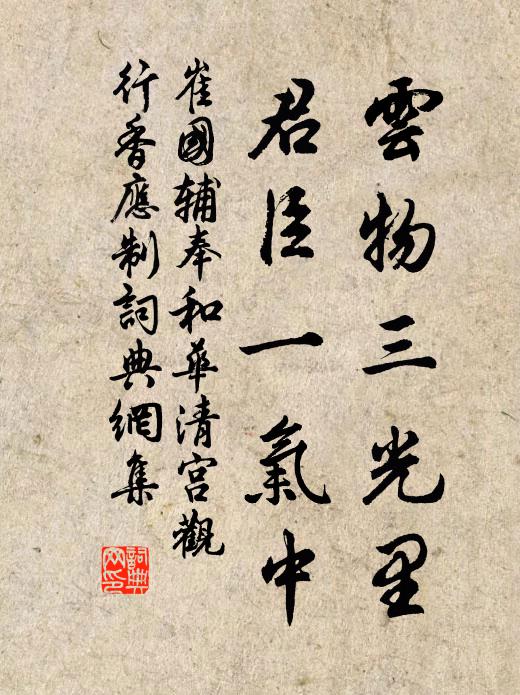 雲物三光里
君臣一氣中
崔國輔奉和華清宮觀
行香應制詞典網集
詞典網印